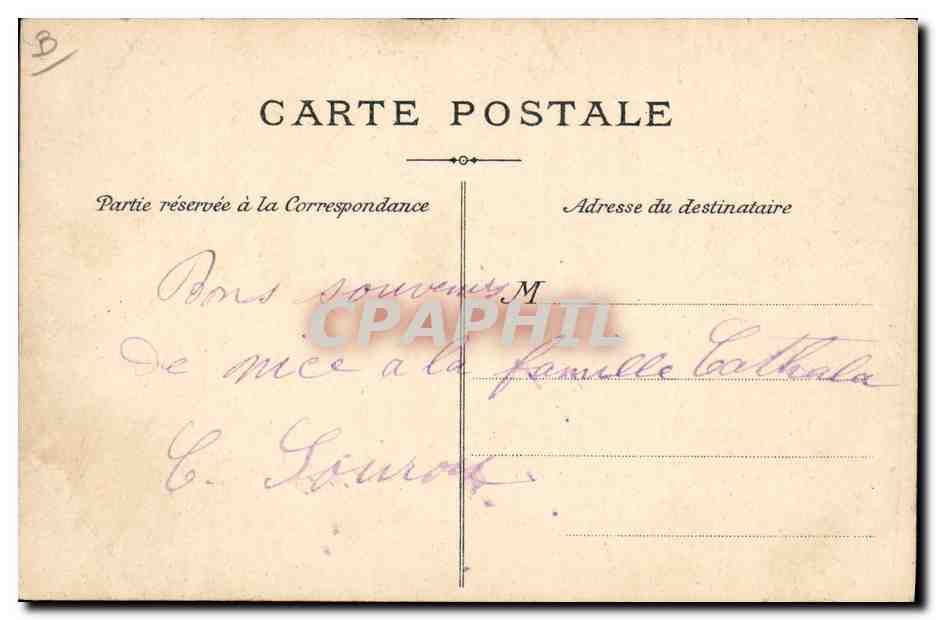 B
CARTE POSTALE
Partie réservée à la Correspondance
Adresse du destinataire
M
CPAPHIL
Bons souvenirs
de nice a la famille Cathala
C.